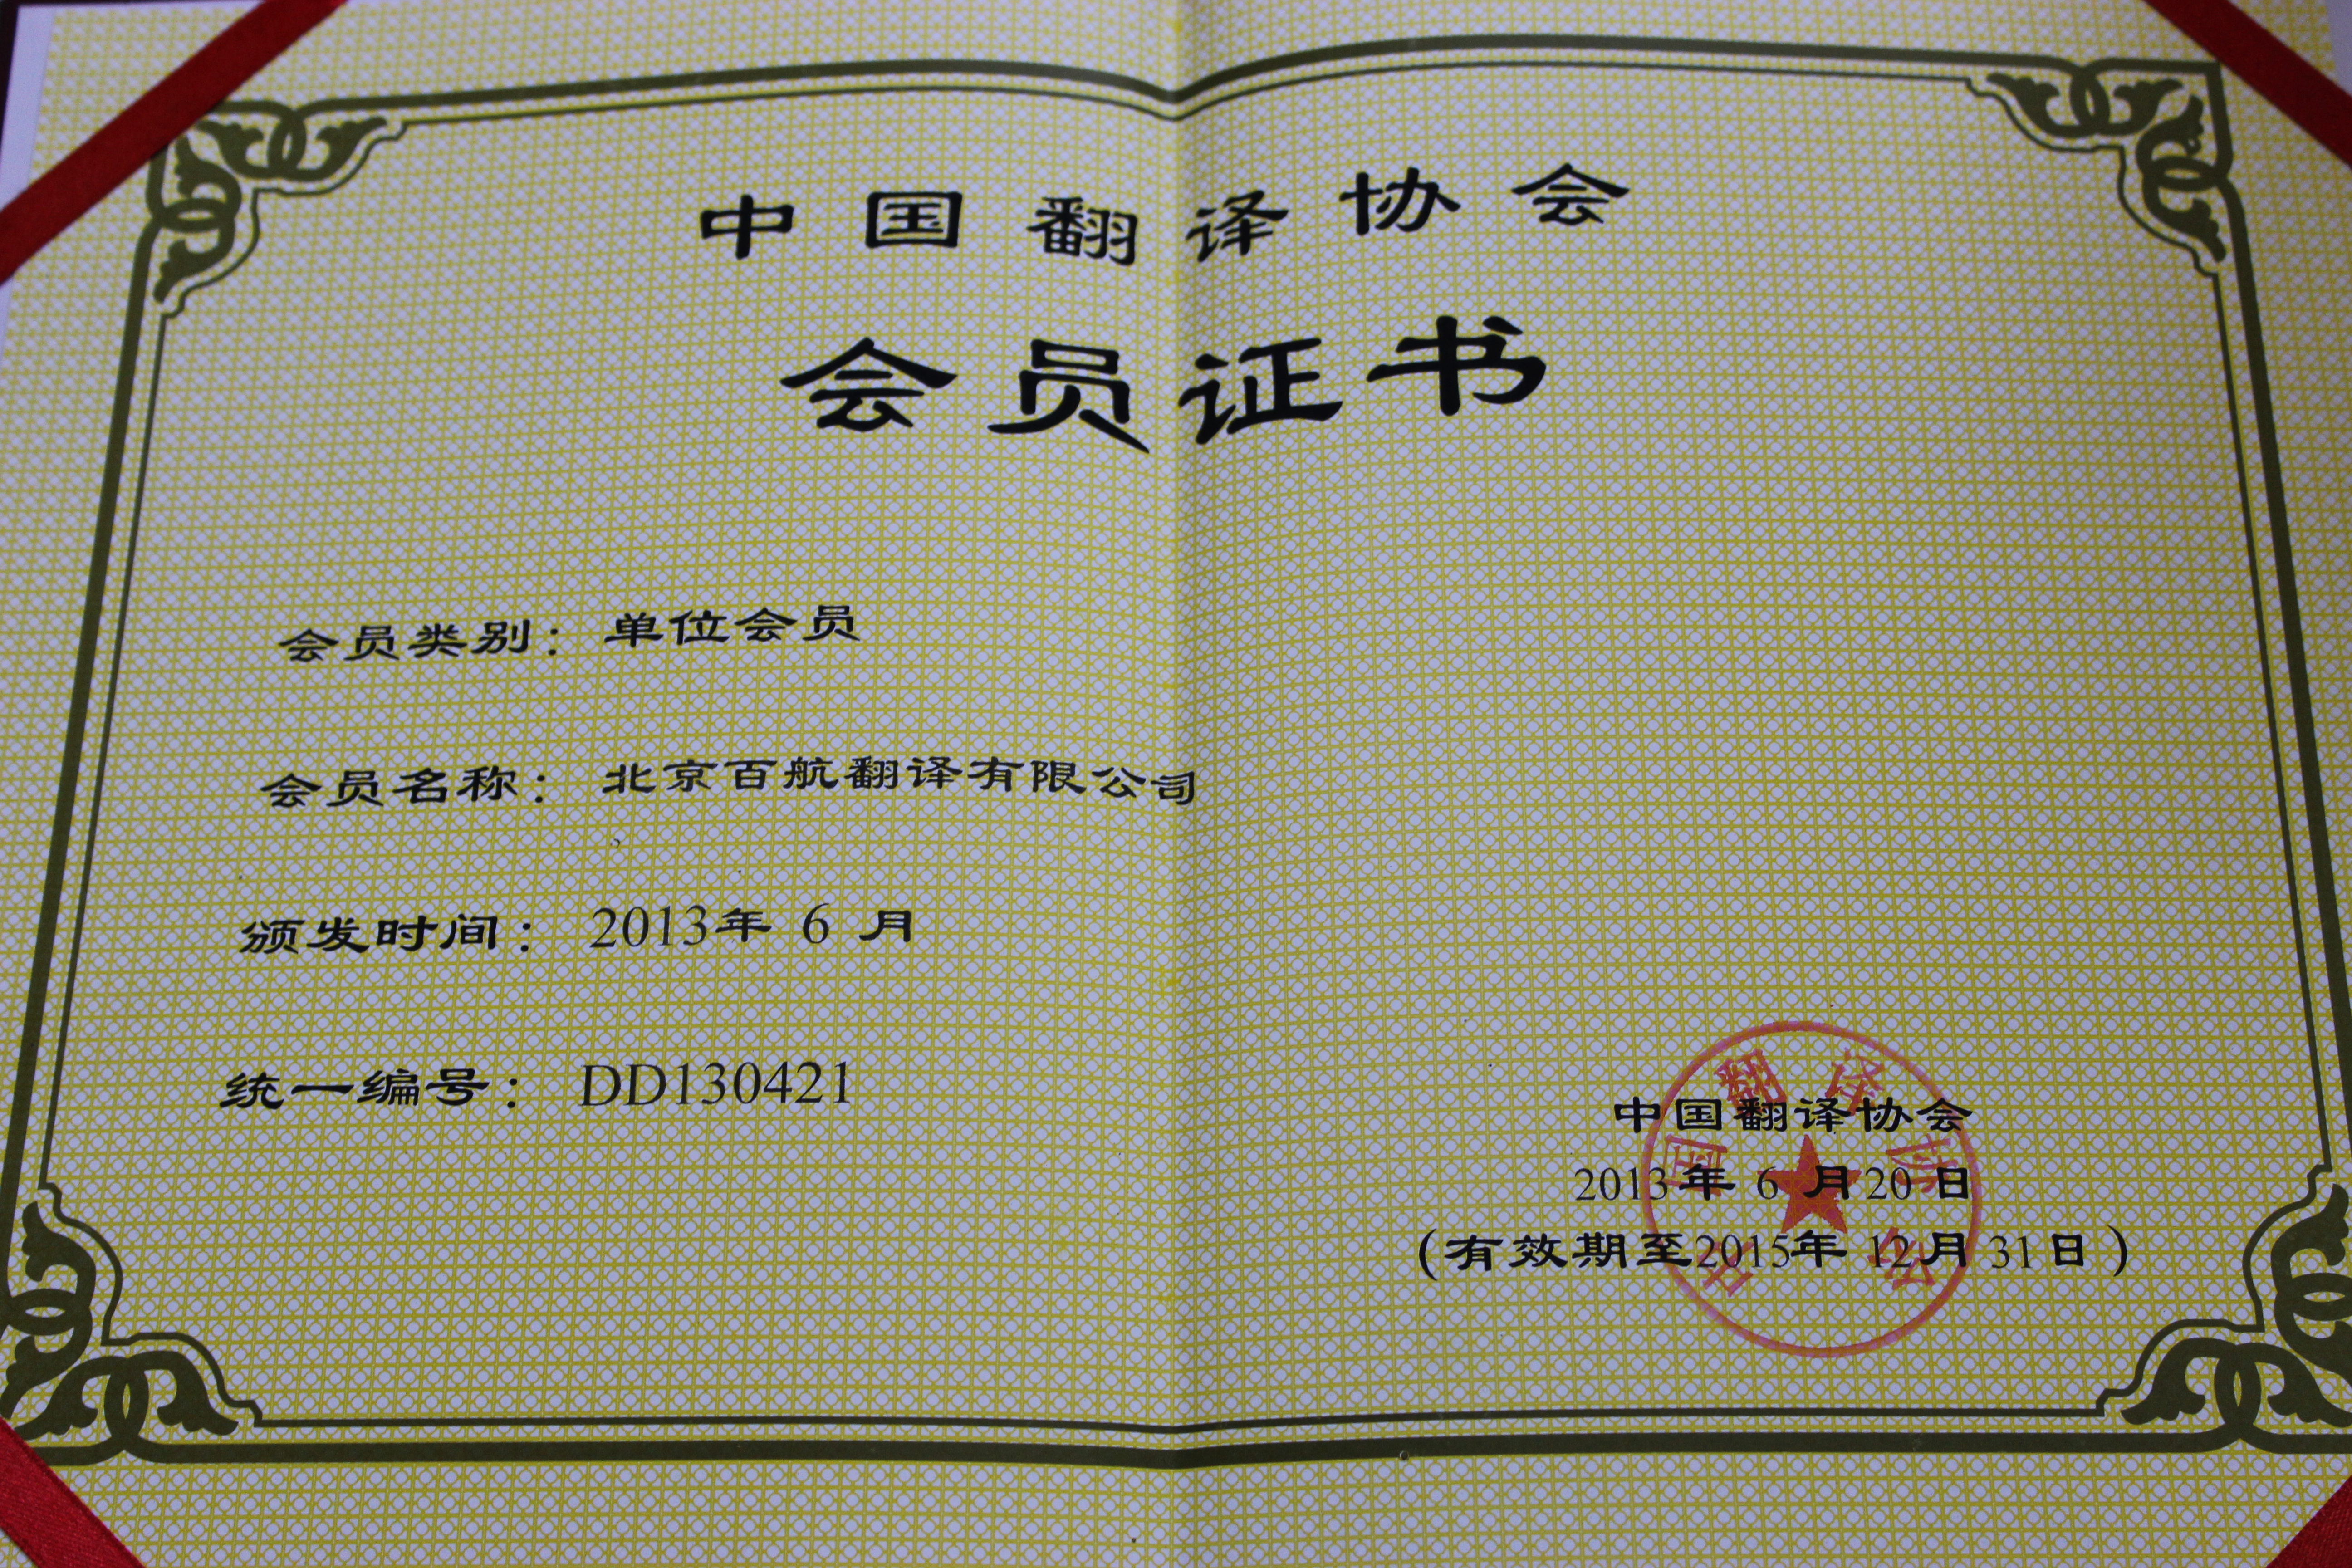 中国翻译协会
会员证书
会员类别：单位会员
会员名称：北京百航翻译有限公司
颁发时间：2013年 6 月
统一编号：DD130421
中国翻译协会
2013年 6 月20 日
(有效期至2015年 12月 31日)
中国翻译协会